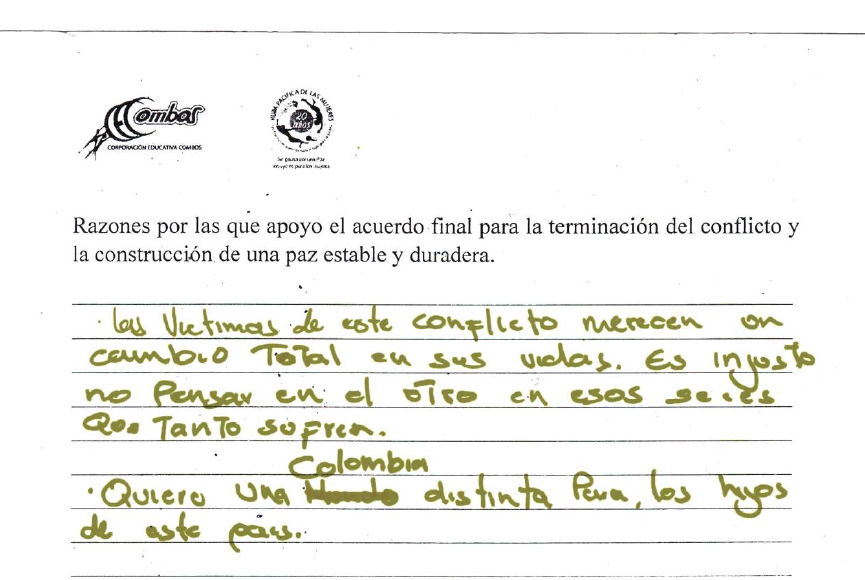 Combos
CORPORACIÓN EDUCATIVA COMBOS
RUTA PACÍFICA DE LAS MUJERES
20 años
Razones por las que apoyo el acuerdo final para la terminación del conflicto y
la construcción de una paz estable y duradera.
· las Victimas de este conflicto merecen un
cambio Total en sus vidas. Es injusto
no Pensar en el otro en esos seres
Que Tanto sufren.
Colombia
· Quiero una distinta Para, los hijos
de este país.